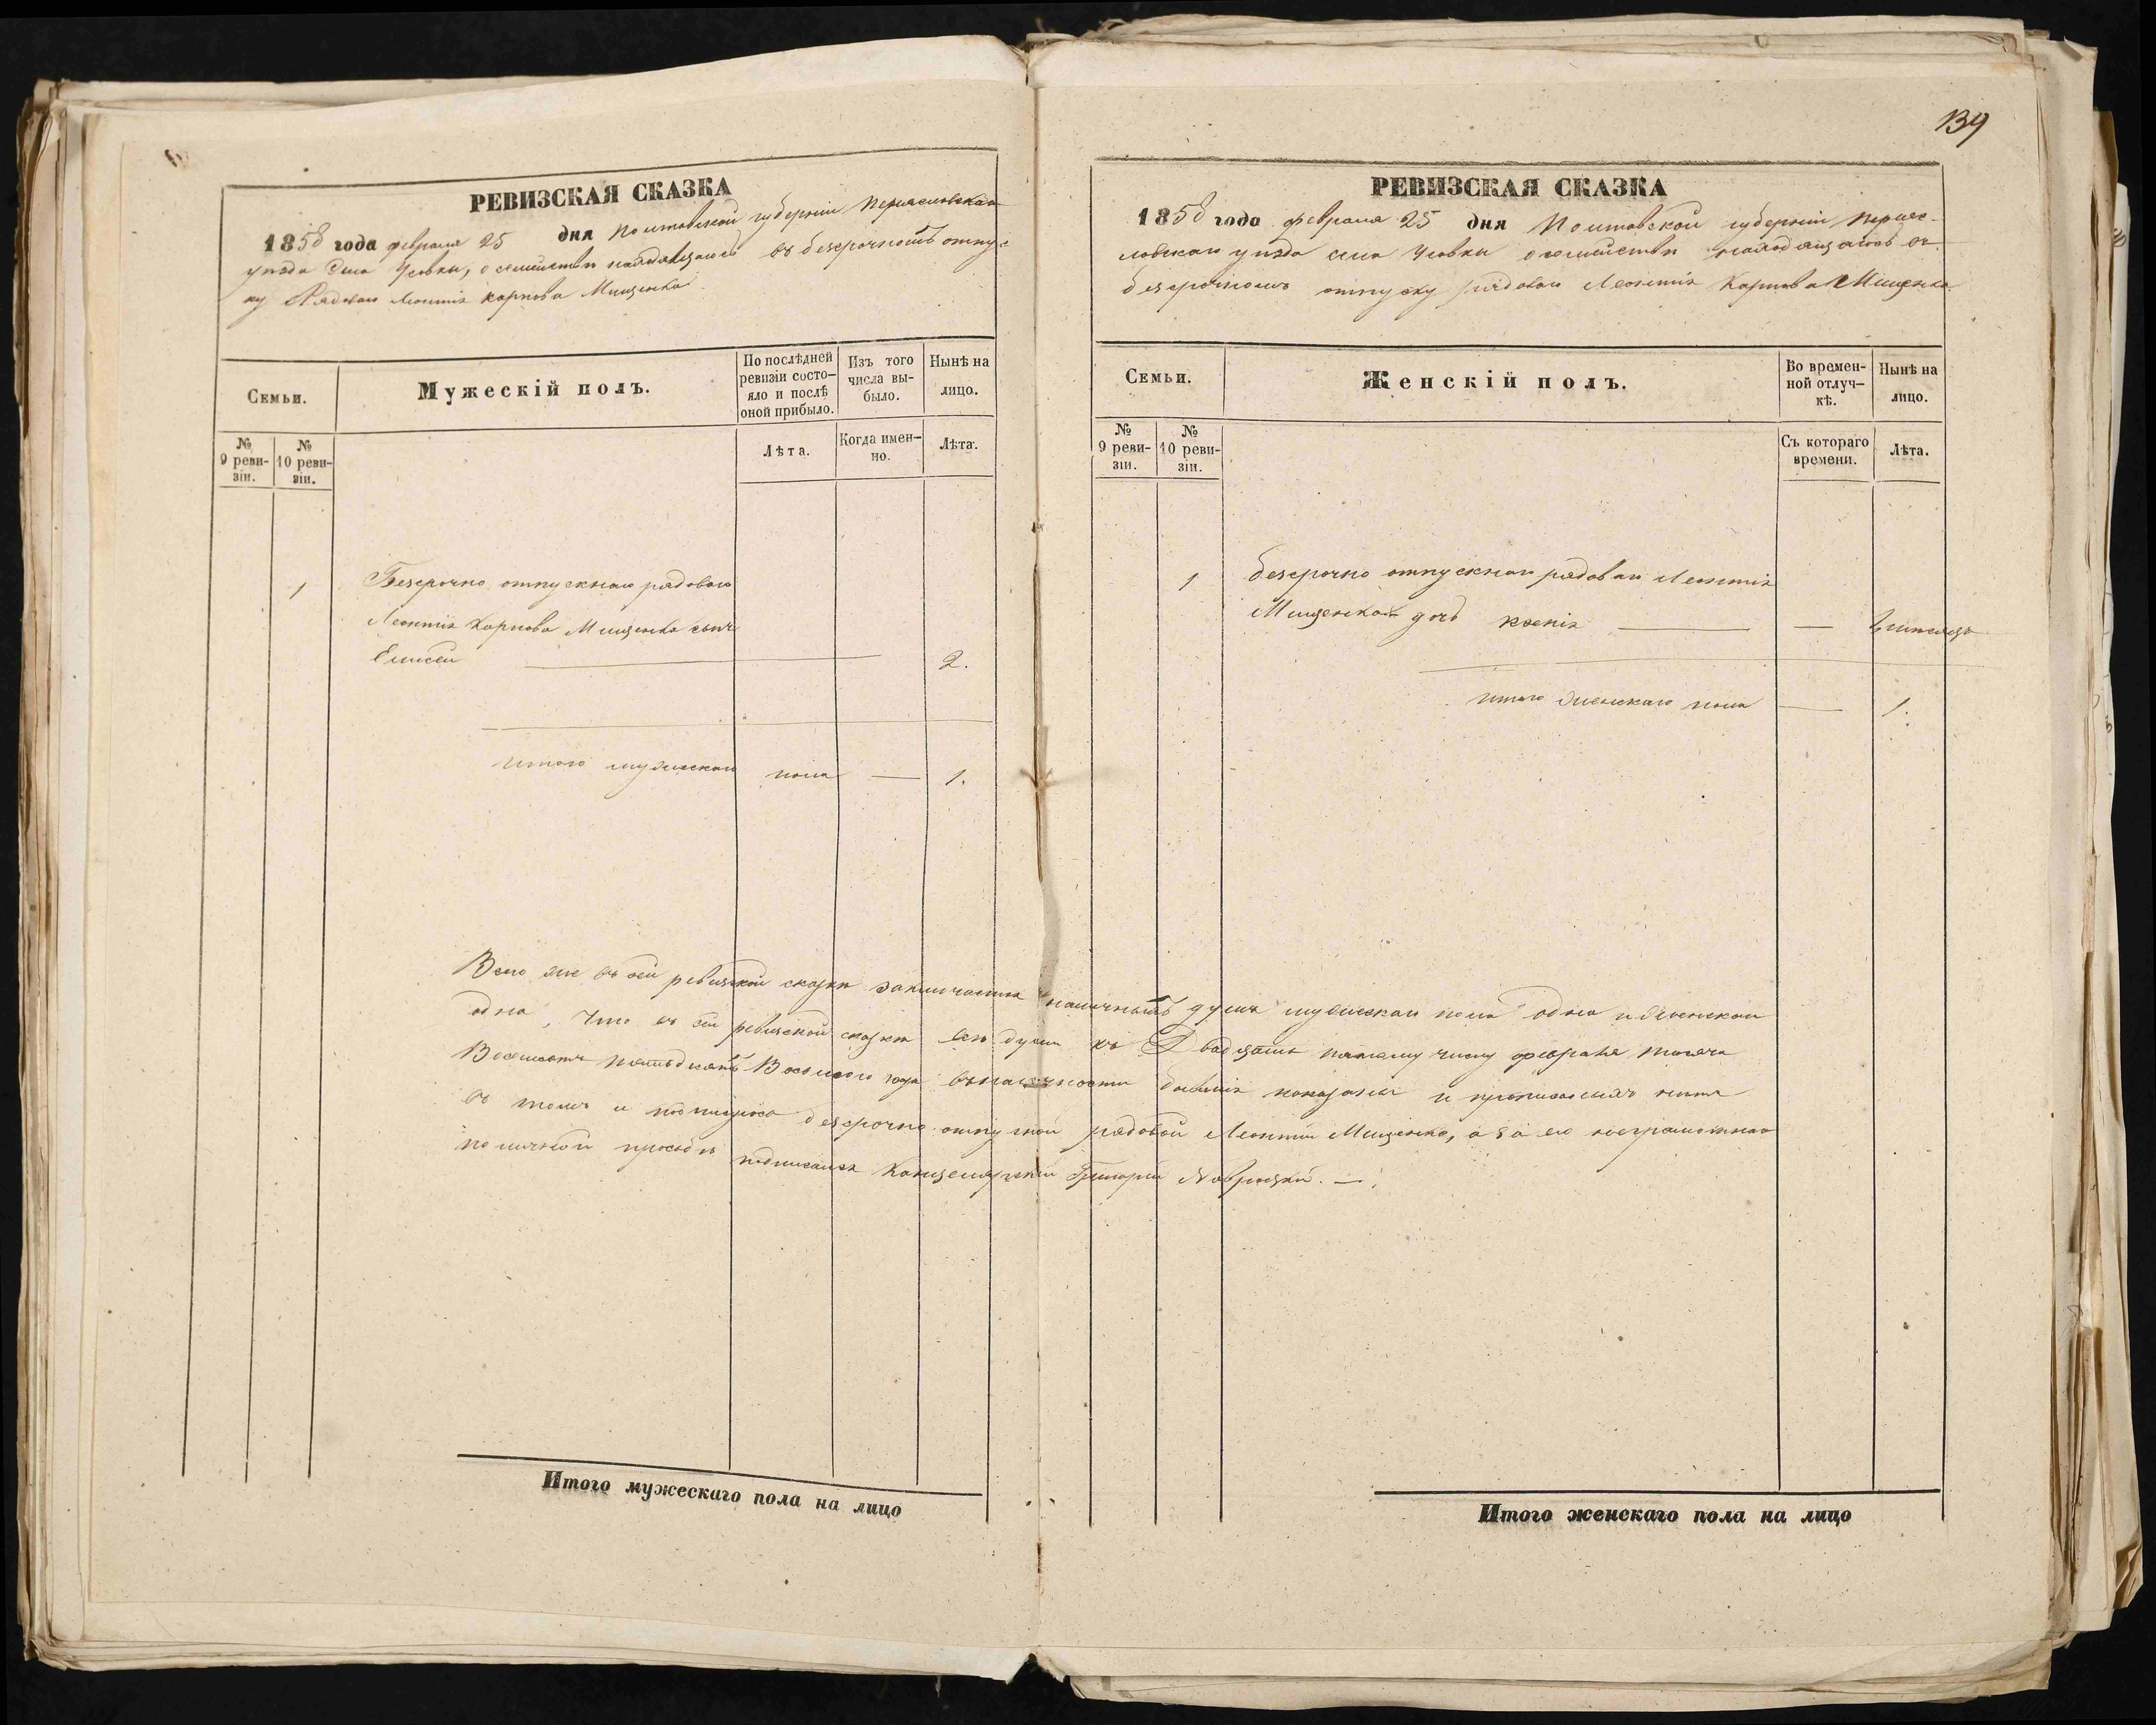 РЕВИЗСКАЯ СКАЗКА
1858 года февраля 25 дня Полтавской губерніи Переяславскаго
уѣзда села Усовки, о семействѣ находящагося въ безсрочномъ отпус
ку Рядоваго Леонтія Карпова Мищенка
Семьи.
Мужескій полъ.
По послѣдней ревизіи состо-
яло и послѣ оной прибыло.
Изъ того числа вы-
было.
Нынѣ на лицо.
№ 9 реви-
зіи.
№ 10 реви-
зіи.
Лѣта.
Когда имен-
но.
Лѣта.
1 Безсрочно отпускнаго рядоваго
Леонтія Карпова Мищенка сынъ
Елисей 2.
Итого мужескаго пола 1.
139
РЕВИЗСКАЯ СКАЗКА
1858 года февраля 25 дня Полтавской губерніи Переяс-
лавскаго уѣзда села Усовки о семействѣ находящагося въ
безсрочномъ отпуску рядоваго Леонтія Карпова Мищенка
Семьи.
Женскій полъ.
Во времен-
ной отлуч-
кѣ.
Нынѣ на лицо.
№ 9 реви-
зіи.
№ 10 реви-
зіи.
Съ котораго времени.
Лѣта.
1 безсрочно отпускнаго рядоваго Леонтія
Мищенка дочь Ксенія
Итого женскаго пола 1.
Всего же въ сей ревизской сказкѣ заключается наличныхъ душъ мужескаго пола одна и женскаго
одна, Что въ сей ревизской сказкѣ всѣ души къ Двадцать пятому числу февраля тысяча
Восемсотъ пятьдесятъ Восьмого года въ наличности бывшія показаны и прописныхъ нѣтъ
въ томъ и подписуюсь безсрочно отпускной рядовой Леонтій Мищенко, а за его неграмотнаго
по личной просьбѣ подписался Канцелярскій Григорій
Итого мужескаго пола на лицо
Итого женскаго пола на лицо